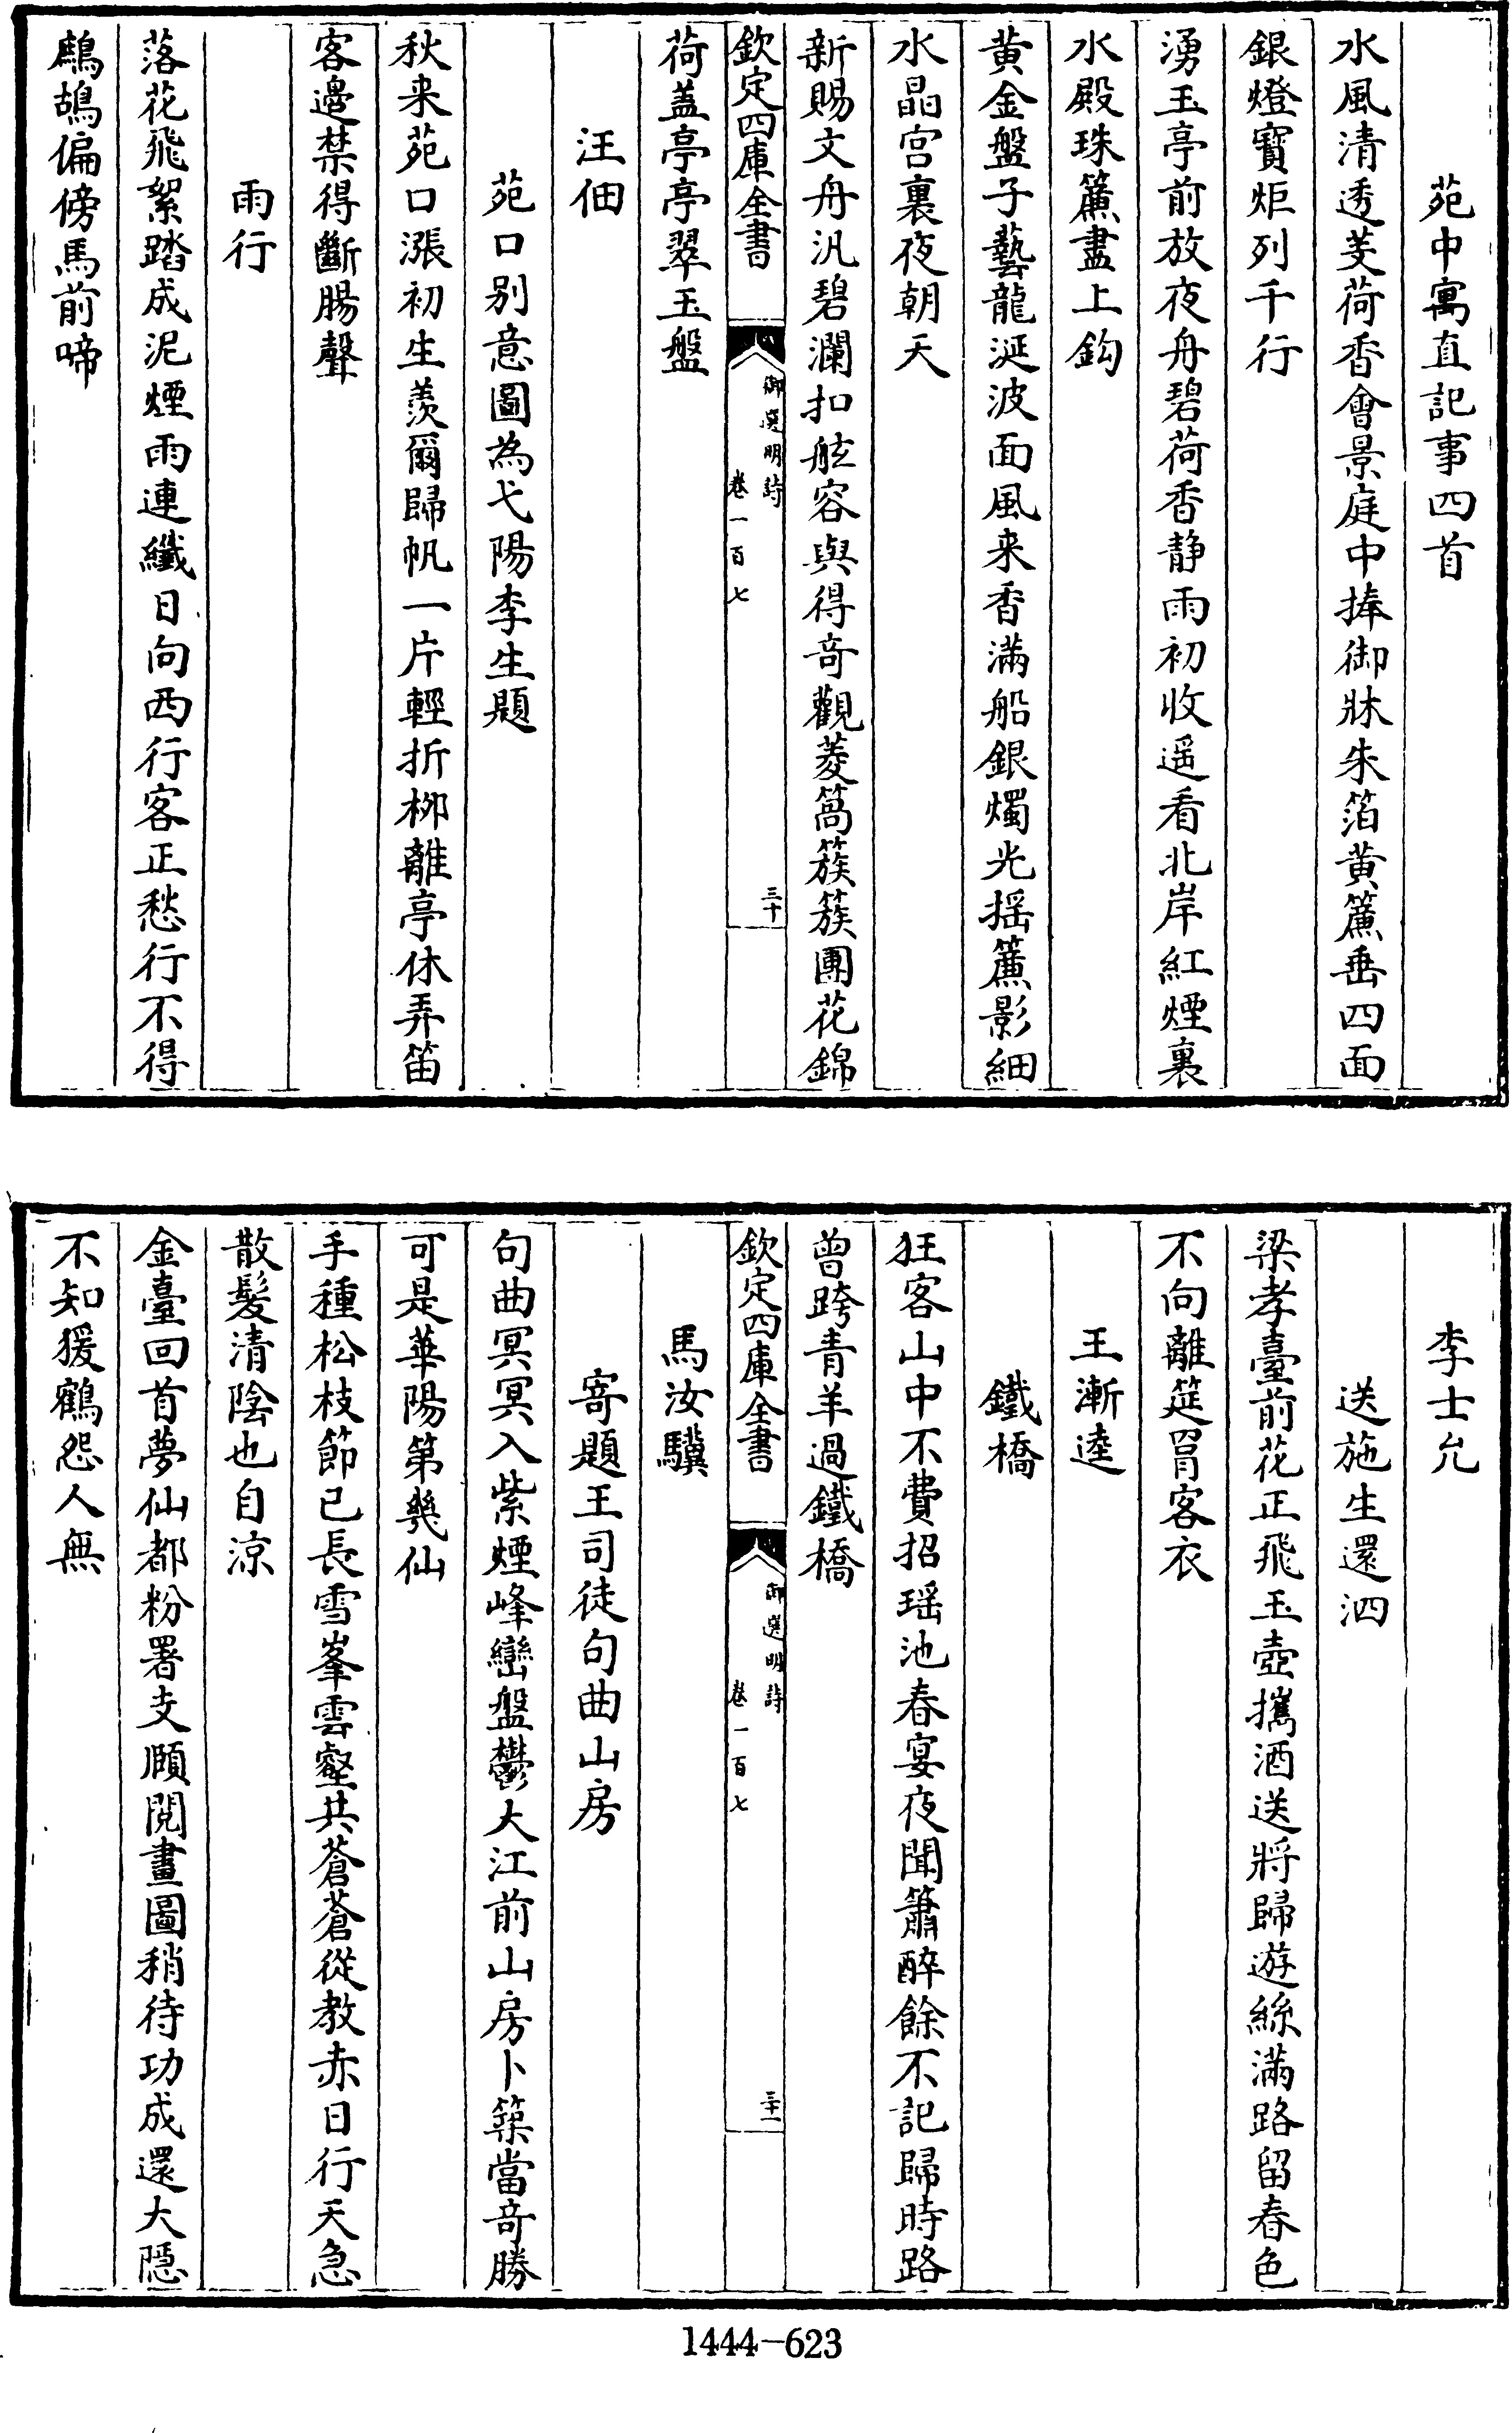 苑中寓直記事四首
水風清透芰荷香會景庭中捧御牀朱箔黄簾垂四面
銀燈寶炬列千行
湧玉亭前放夜舟碧荷香静雨初收遥看北岸紅煙裏
水殿珠簾盡上鈎
黄金盤子藝龍涎波面風来香滿船銀燭光揺簾影細
水晶宫裏夜朝天
新賜文舟汎碧瀾扣舷容與得奇觀菱蒿簇簇團花錦
欽定四庫全書
御選明詩
卷一百七
三十
荷葢亭亭翠玉盤
汪佃
苑口别意圖為弋陽李生題
秋来苑口漲初生羨爾歸帆一片輕折栁離亭休弄笛
客邉禁得斷腸聲
雨行
落花飛絮踏成泥煙雨連纖日向西行客正愁行不得
鷓鴣偏傍馬前啼
李士允
送施生還泗
梁孝臺前花正飛玉壺攜酒送將歸遊絲滿路留春色
不向離筵罥客衣
王漸逵
鐵橋
狂客山中不費招瑶池春宴夜聞簫醉餘不記歸時路
曾跨青羊過鐵橋
欽定四庫全書
御選明詩
卷一百七
三十一
馬汝驥
寄題王司徒句曲山房
句曲冥冥入紫煙峰巒盤鬱大江前山房卜築當奇勝
可是華陽第幾仙
手種松枝節已長雪峯雲壑共蒼蒼從教赤日行天急
散髮清陰也自涼
金臺回首夢仙都粉署支頤閱畫圖稍待功成還大隱
不知猨鶴怨人無
1444-623